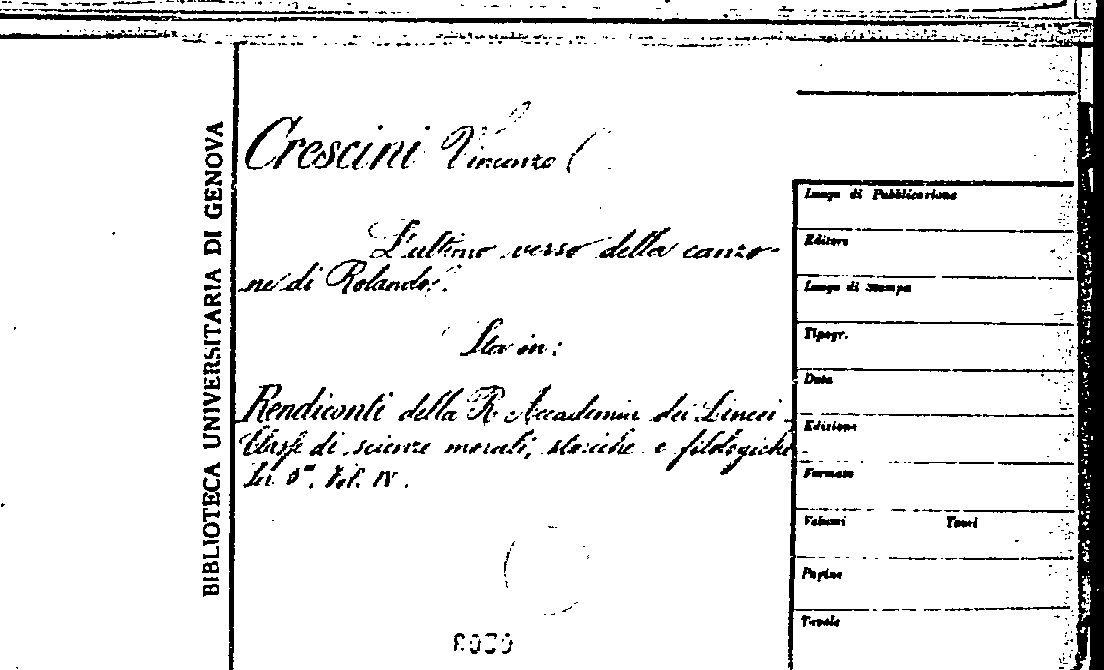 BIBLIOTECA UNIVERSITARIA DI GENOVA
Crescini Vincenzo (
L'ultimo verso della canzo-
ne di Rolando.
Sta in:
Rendiconti della R. Accademia dei Lincei.
Classe di scienze morali, storiche e filologiche.
Ser. 5ª. Vol. IV.
Luogo di Pubblicazione
Editore
Luogo di Stampa
Tipogr.
Data
Edizione
Formato
Volumi Tomi
Pagine
Tavole